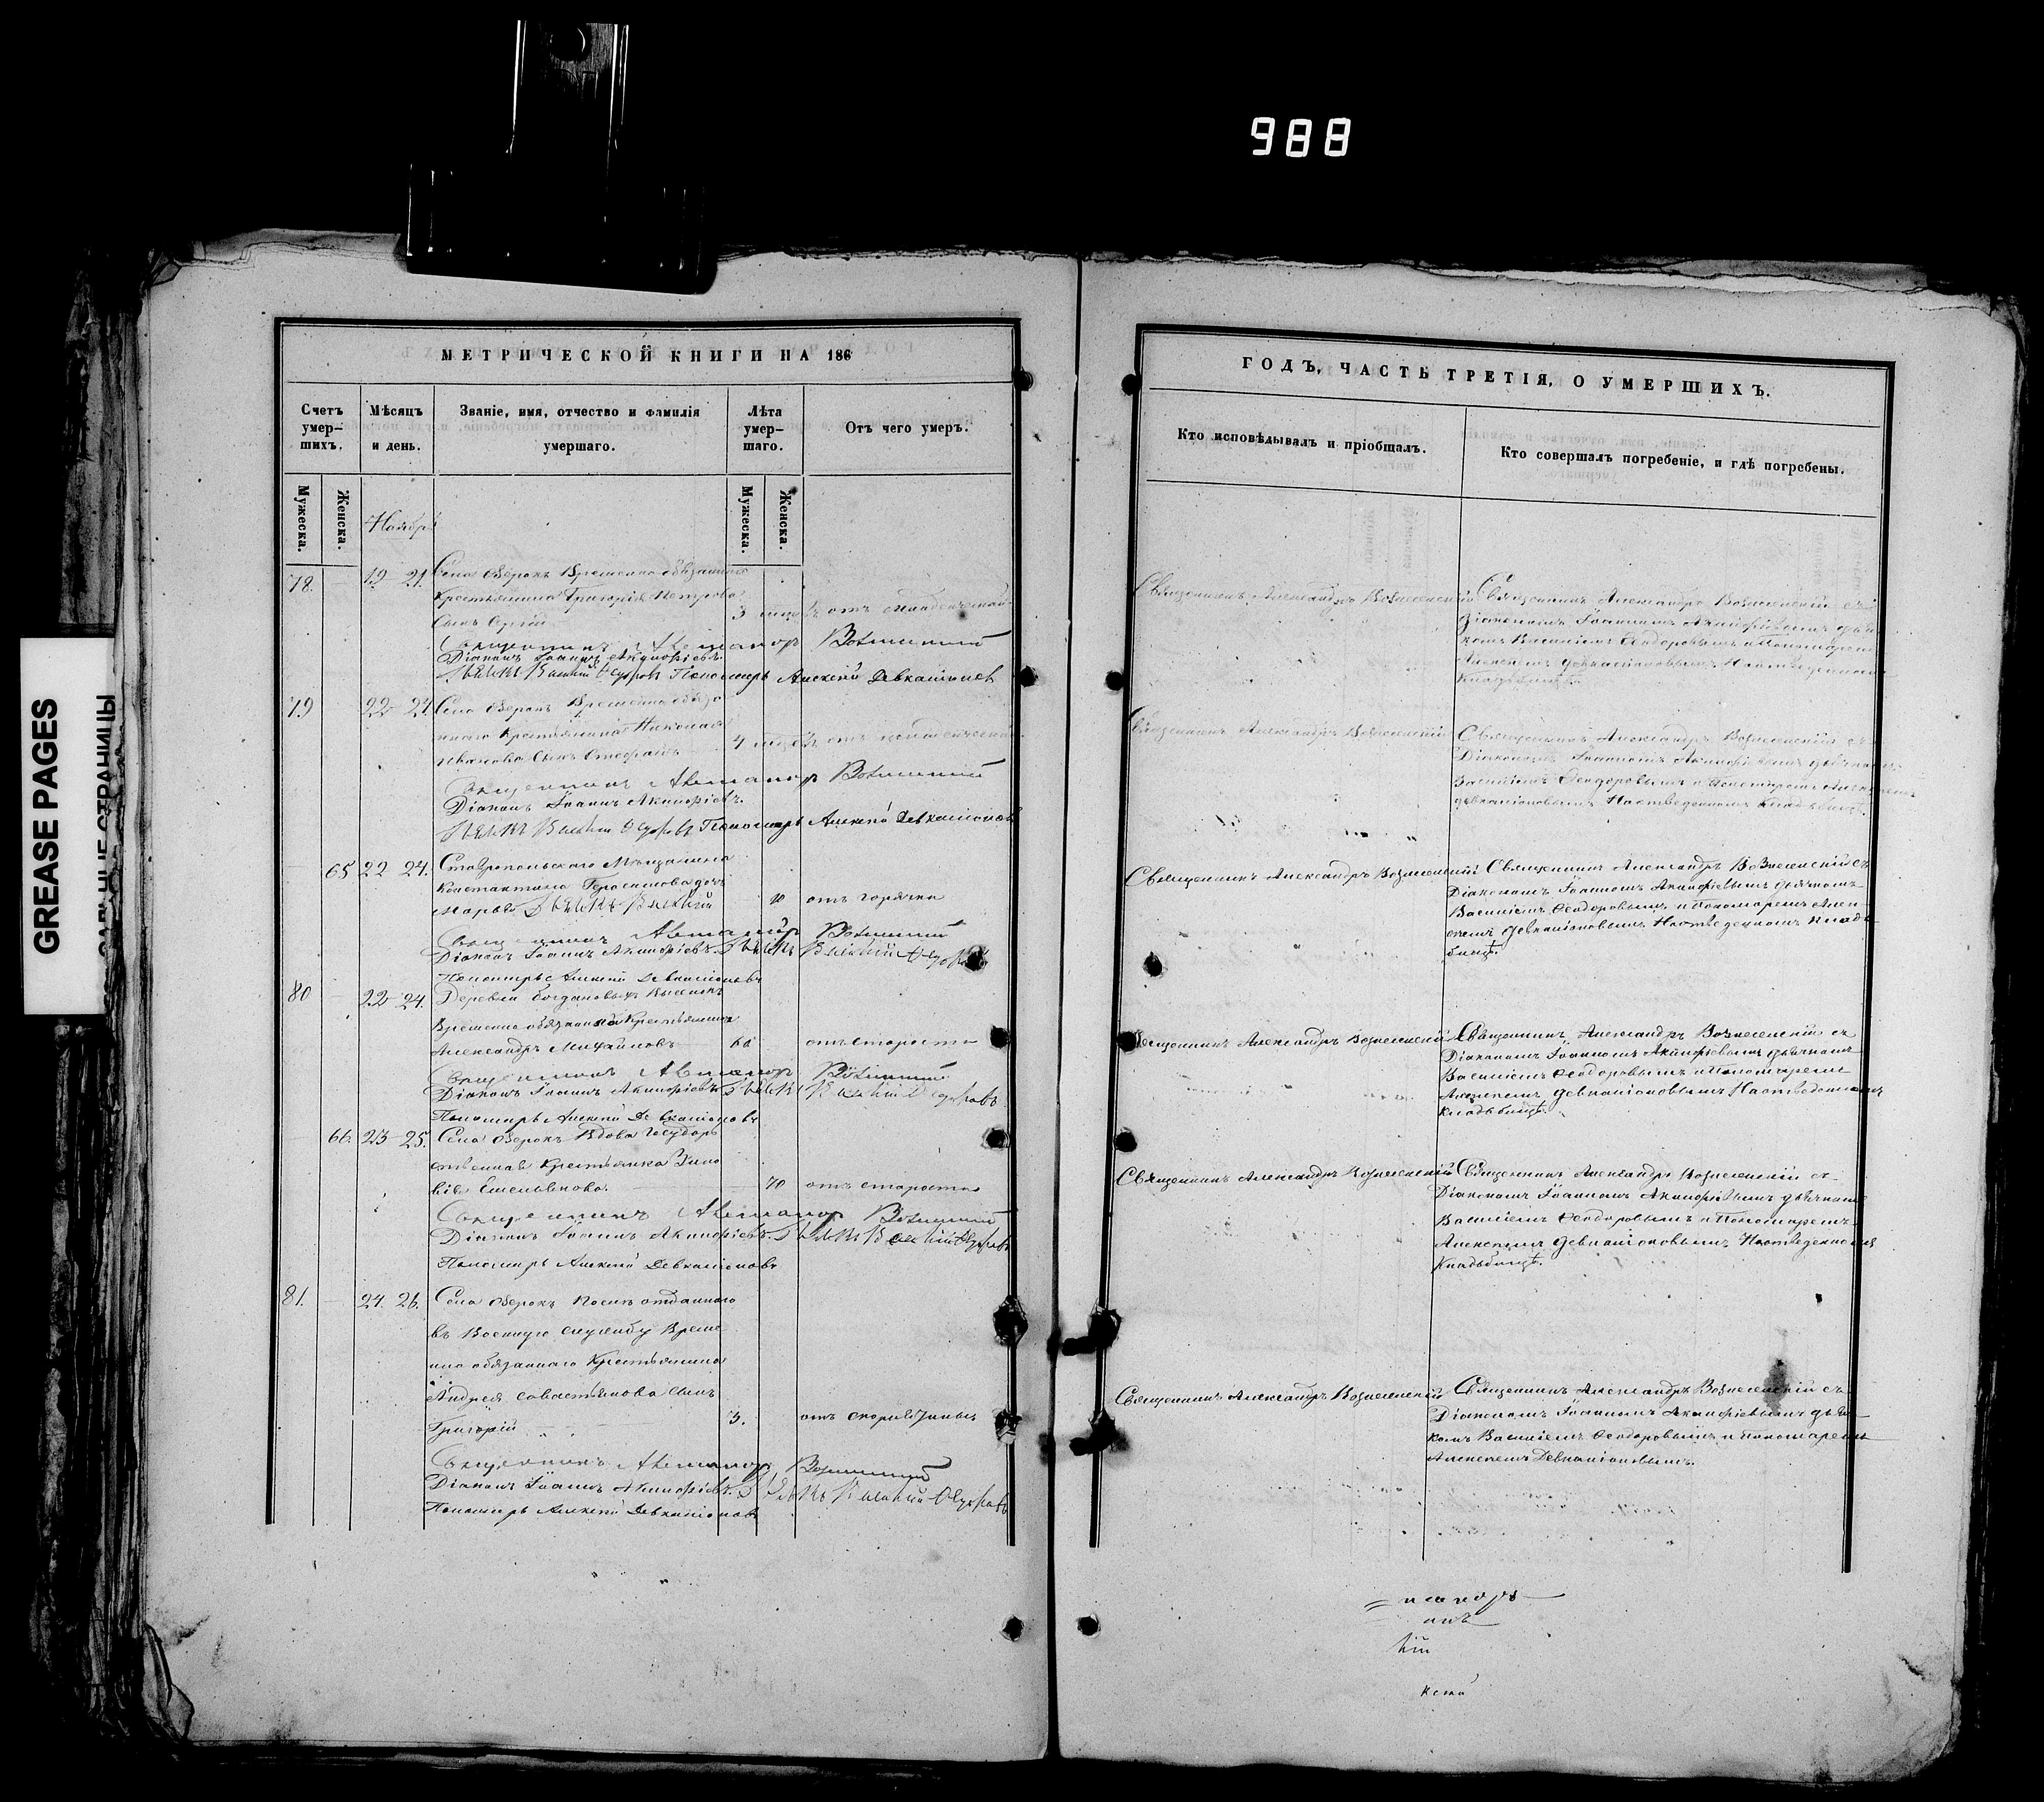 988
GREASE PAGES
САЛЬНЫЕ СТРАНИЦЫ
МЕТРИЧЕСКОЙ КНИГИ НА 186
Счетъ умер-шихъ.
Мѣсяцъ и день.
Званіе, имя, отчество и фамилія умершаго.
Лѣта умер-шаго.
Отъ чего умеръ.
Мужеска.
Женска.
Ноябрь
Мужеска.
Женска.
78. 19 21. Села Озерокъ Временно обязаннаго
Крестьянина Григорія Петрова
Сынъ Сергій 3 отъ младенческой
Священникъ Александръ Вознесенскій
Діаконъ Іоаннъ Акинфіевъ
Дьячекъ Василій Ѳедоровъ Пономарь Алексѣй Девкаліоновъ
79 22 24 Села Озерокъ Временно обяза
ннаго Крестьянина Николая
Иванова Сынъ Стефанъ 4
Священникъ Александръ Вознесенскій
Діаконъ Іоаннъ Акинфіевъ.
Дьячекъ Василій Ѳедоровъ Пономарь Алексѣй Девкаліоновъ
65 22 24. Ставропольскаго Мѣщанина
Константина Герасимова дочь
Марья 10 отъ горячки
Священникъ Александръ Вознесенскій
Діаконъ Іоаннъ Акинфіевъ. Дьячекъ Василій Ѳедоровъ
Пономарь Алексѣй Девкаліоновъ
80 22 24. Деревни Богдановыхъ Выселокъ
Временно обязанный Крестьянинъ
Александръ Михайловъ 60 отъ старости
Священникъ Александръ Вознесенскій
Діаконъ Іоаннъ Акинфіевъ Дьячекъ Василій Ѳедоровъ
Пономарь Алексѣй Девкаліоновъ
66. 23 25. Села Озерокъ Вдова Государ
ственная Крестьянка Зино
вія Емельянова. 70 отъ старости
Священникъ Александръ Вознесенскій
Діаконъ Іоаннъ Акинфіевъ. Дьячекъ Василій Ѳедоровъ
Пономарь Алексѣй Девкаліоновъ
81. 24. 26. Села Озерокъ отданнаго
въ Военную службу Време
нно обязаннаго Крестьянина
Андрея Савастьянова Сынъ
Григорій 3. отъ
Священникъ Александръ Вознесенскій
Діаконъ Іоаннъ Акинфіевъ. Дьячекъ Василій Ѳедоровъ
Пономарь Алексѣй Девкаліоновъ
ГОДЪ, ЧАСТЬ ТРЕТІЯ, О УМЕРШИХЪ.
Кто исповѣдывалъ и пріобщалъ.
Кто совершалъ погребеніе, и гдѣ погребены.
Священникъ Александръ Вознесенскій
Священникъ Александръ Вознесенскій съ
Діакономъ Іоанномъ Акинфіевымъ дьяч
комъ Василіемъ Ѳеодоровымъ и Пономаремъ
Алексѣемъ Девкаліоновымъ На отведенномъ
Кладбищѣ.
Священникъ Александръ Вознесенскій
Священникъ Александръ Вознесенскій съ
Діакономъ Іоанномъ Акинфіевымъ дьячкомъ
Василіемъ Ѳеодоровымъ и Пономаремъ Алексѣемъ
Девкаліоновымъ На отведенномъ Кладбищѣ.
Священникъ Александръ Вознесенскій
Священникъ Александръ Вознесенскій съ
Діакономъ Іоанномъ Акинфіевымъ дьячкомъ
Василіемъ Ѳеодоровымъ и Пономаремъ Алек
сѣемъ Девкаліоновымъ На отведенномъ Клад
бищѣ.
Священникъ Александръ Вознесенскій
Священникъ Александръ Вознесенскій съ
Діакономъ Іоанномъ Акинфіевымъ дьячкомъ
Василіемъ Ѳеодоровымъ и Пономаремъ
Алексѣемъ Девкаліоновымъ На отведенномъ
Кладбищѣ.
Священникъ Александръ Вознесенскій
Священникъ Александръ Вознесенскій съ
Діакономъ Іоанномъ Акинфіевымъ дьячкомъ
Василіемъ Ѳеодоровымъ и Пономаремъ
Алексѣемъ Девкаліоновымъ На отведенномъ
Кладбищѣ.
Священникъ Александръ Вознесенскій
Священникъ Александръ Вознесенскій съ
Діакономъ Іоанномъ Акинфіевымъ дьяч
комъ Василіемъ Ѳеодоровымъ и Пономаремъ
Алексѣемъ Девкаліоновымъ.